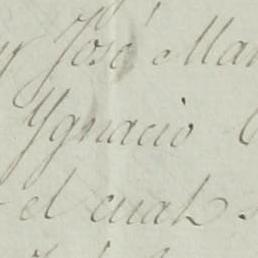 José Mar
Ygnacio
el cual